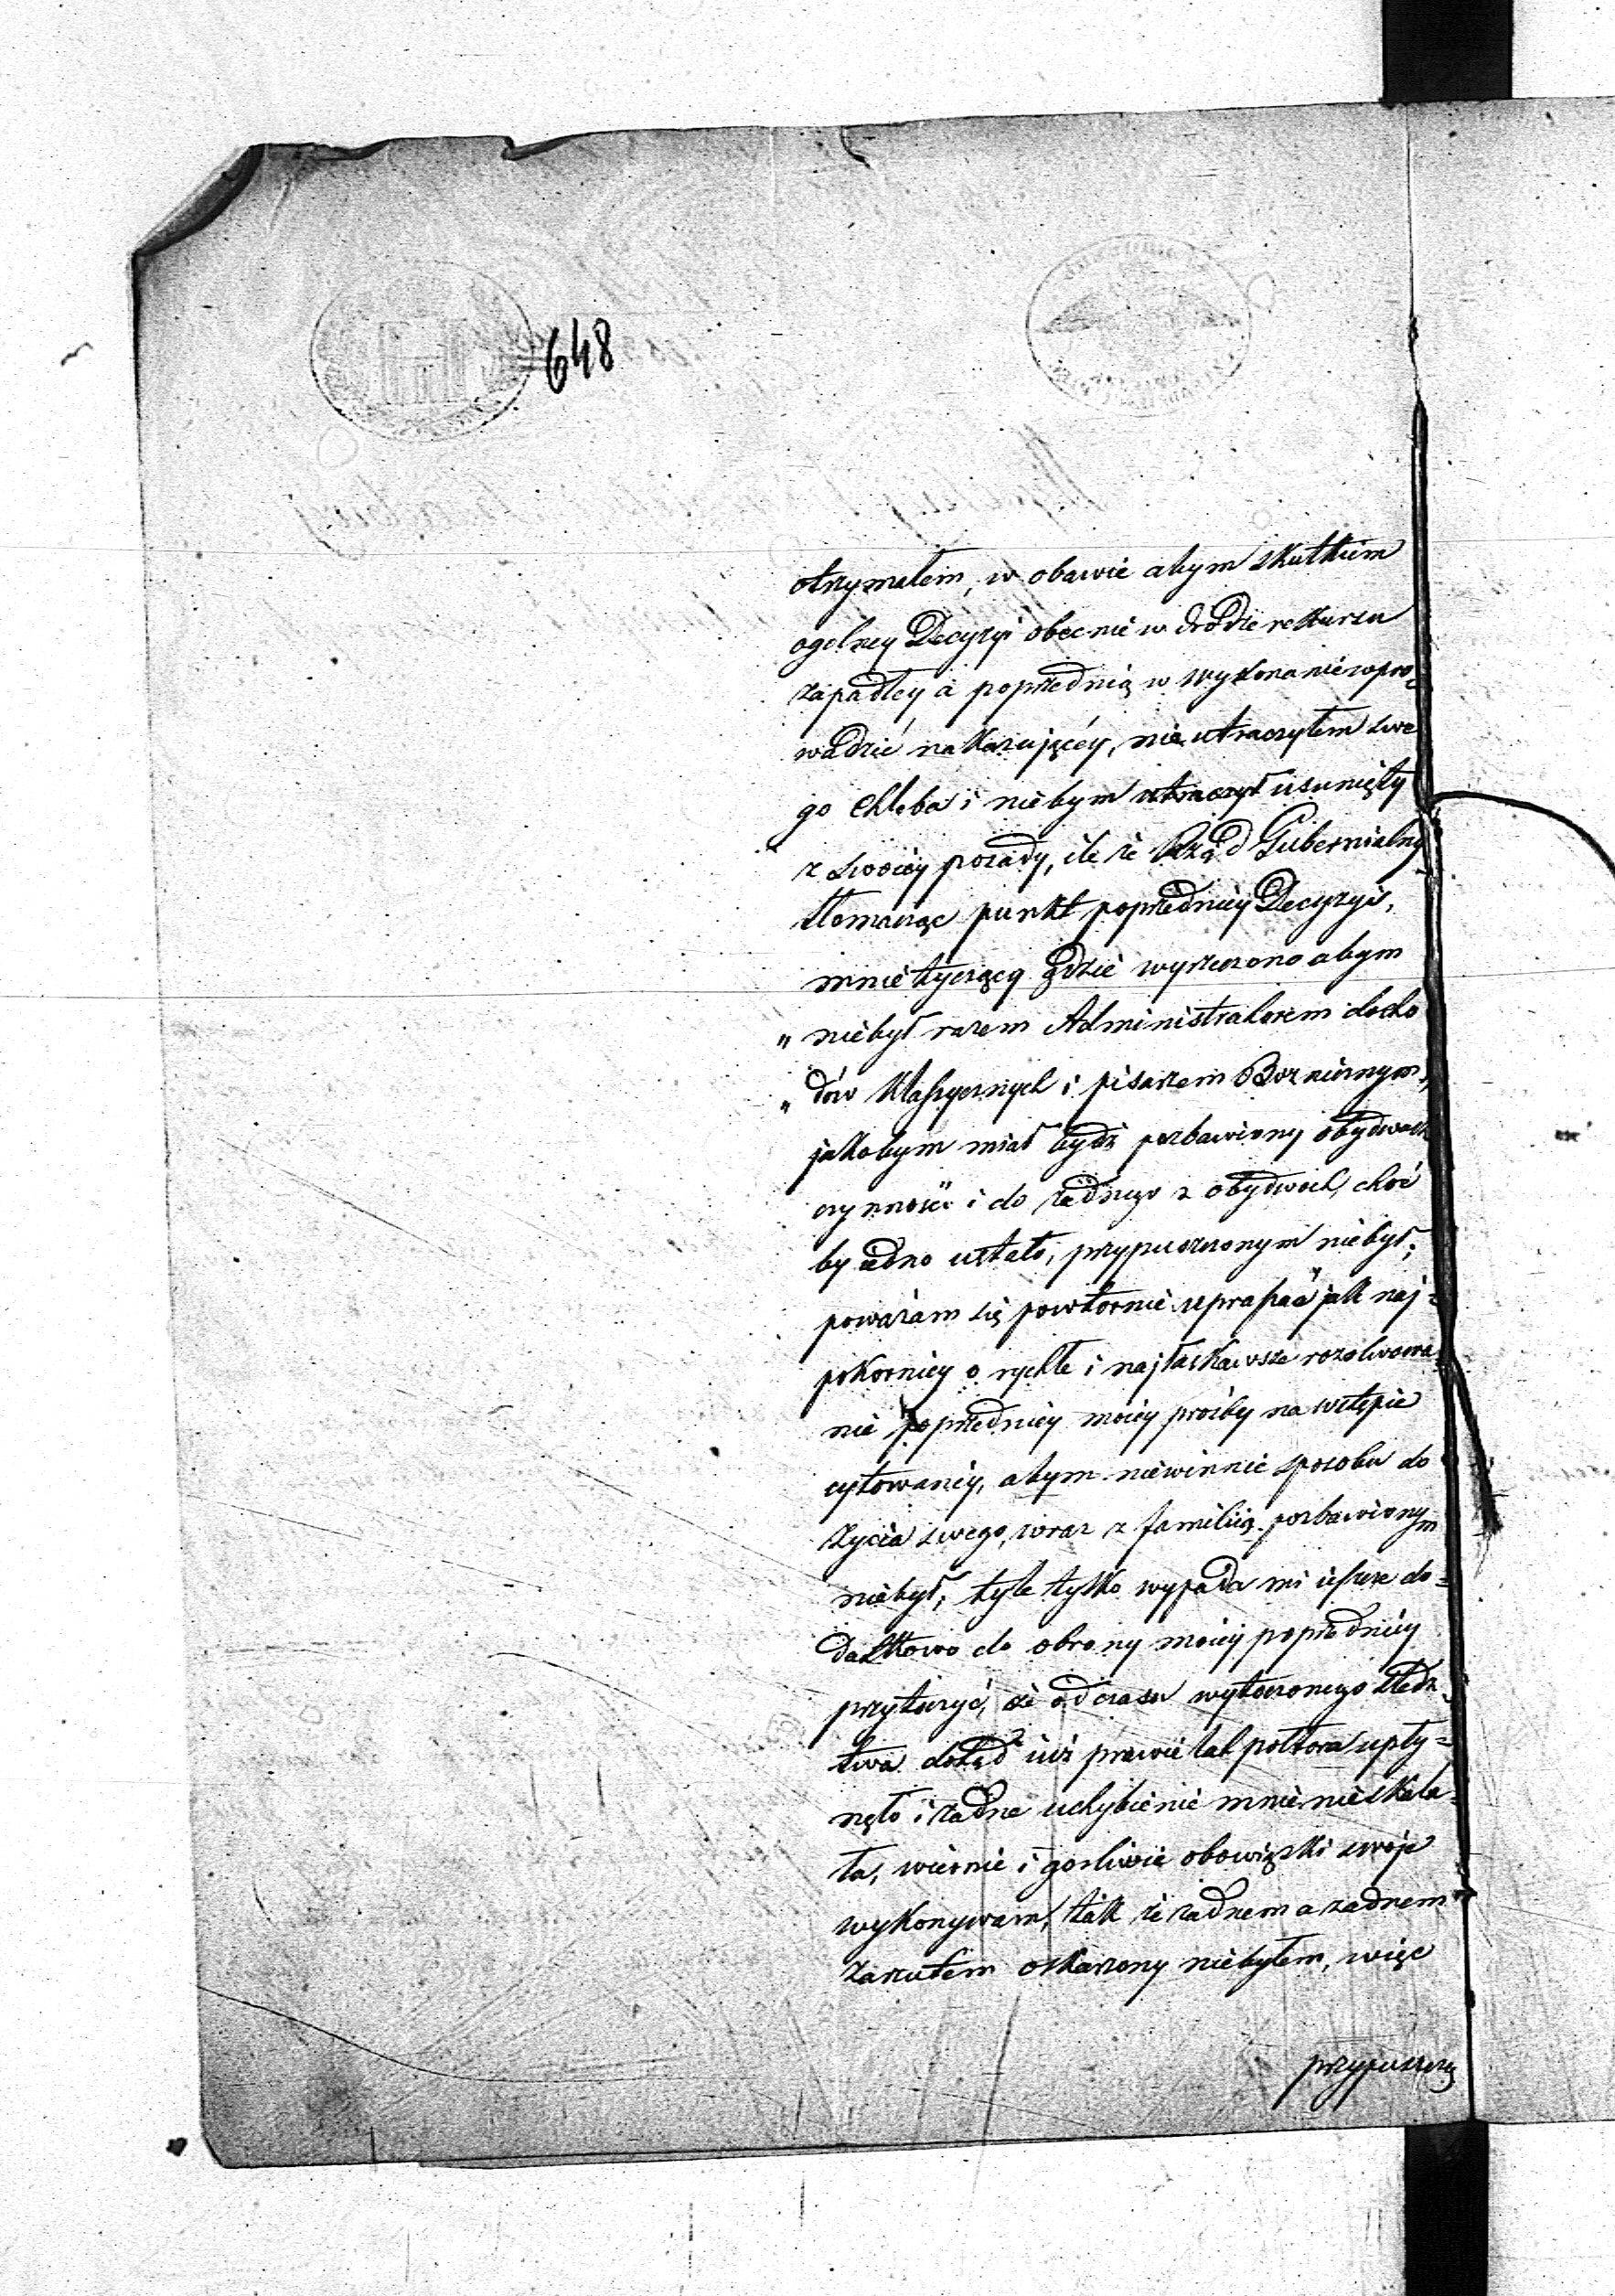 648
otrzymałem, w obawie abym skutkiem
ogólney Decyzyi obecnie w drodze rekursu
zapadłey a poprzednią w wykonanie wpro-
wadzić nakazującéy, nie utraczyłem swe
go chleba i niebym utraczył usunięty
z swoiey posady, ile że Rząd Gubernialny
tłomacząc punkt poprzedniey Decyzyi,
mnie tyczącą gdzie wyrzeczono abym
" niebył razem Administratorem docho
" dów Klassycznych i pisarzem Bożnicznym,
jakobym miał bydź pozbawiony obydwoch
czynności i do żadnego z obydwoch, choć
by iedno ustało, przypuszczonym niebył;
poważam się powtórnie upraszać jak naj-
pokorniey o rychłe i najłaskawsze rozolwowa-
nie poprzedniey moiey prośby na wstępie
cytowaney, abym niewinnie sposobu do
życia swego, wraz z familią pozbawionym
niebył, tyle tylko wypada mi ieszcze do-
datkowo do obrony moiey poprzedniey
przytoczyć, że od czasu wytoczonego śledz-
twa dotąd iuż prawie lat półtora upły-
nęło i żadne uchybienie mnie nieskala-
ła, wiernie i gorliwie obowiązki swoje
wykonywam, tak że żadnem a żadnem
zarzutem oskarżony niebyłem, więc
przypuszczę